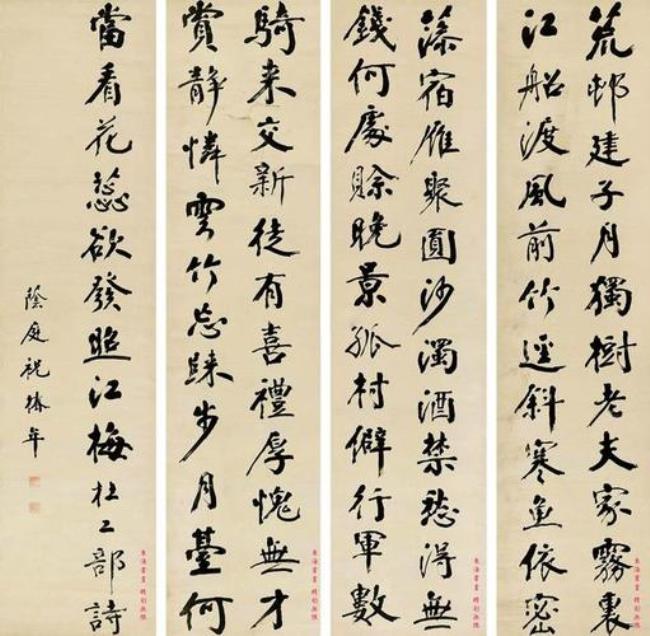 荒邨建子月獨樹老夫家霧裏
江船渡風前竹逕斜寒魚依密
藻宿雁聚圓沙濁酒禁愁得無
錢何處賒晚景孤村僻行軍數
騎来交新徒有喜禮厚愧無才
賞靜憐雲竹忘歸步月臺何
當看花蕊欲發照江梅杜工部詩
蔭庭祝椿年